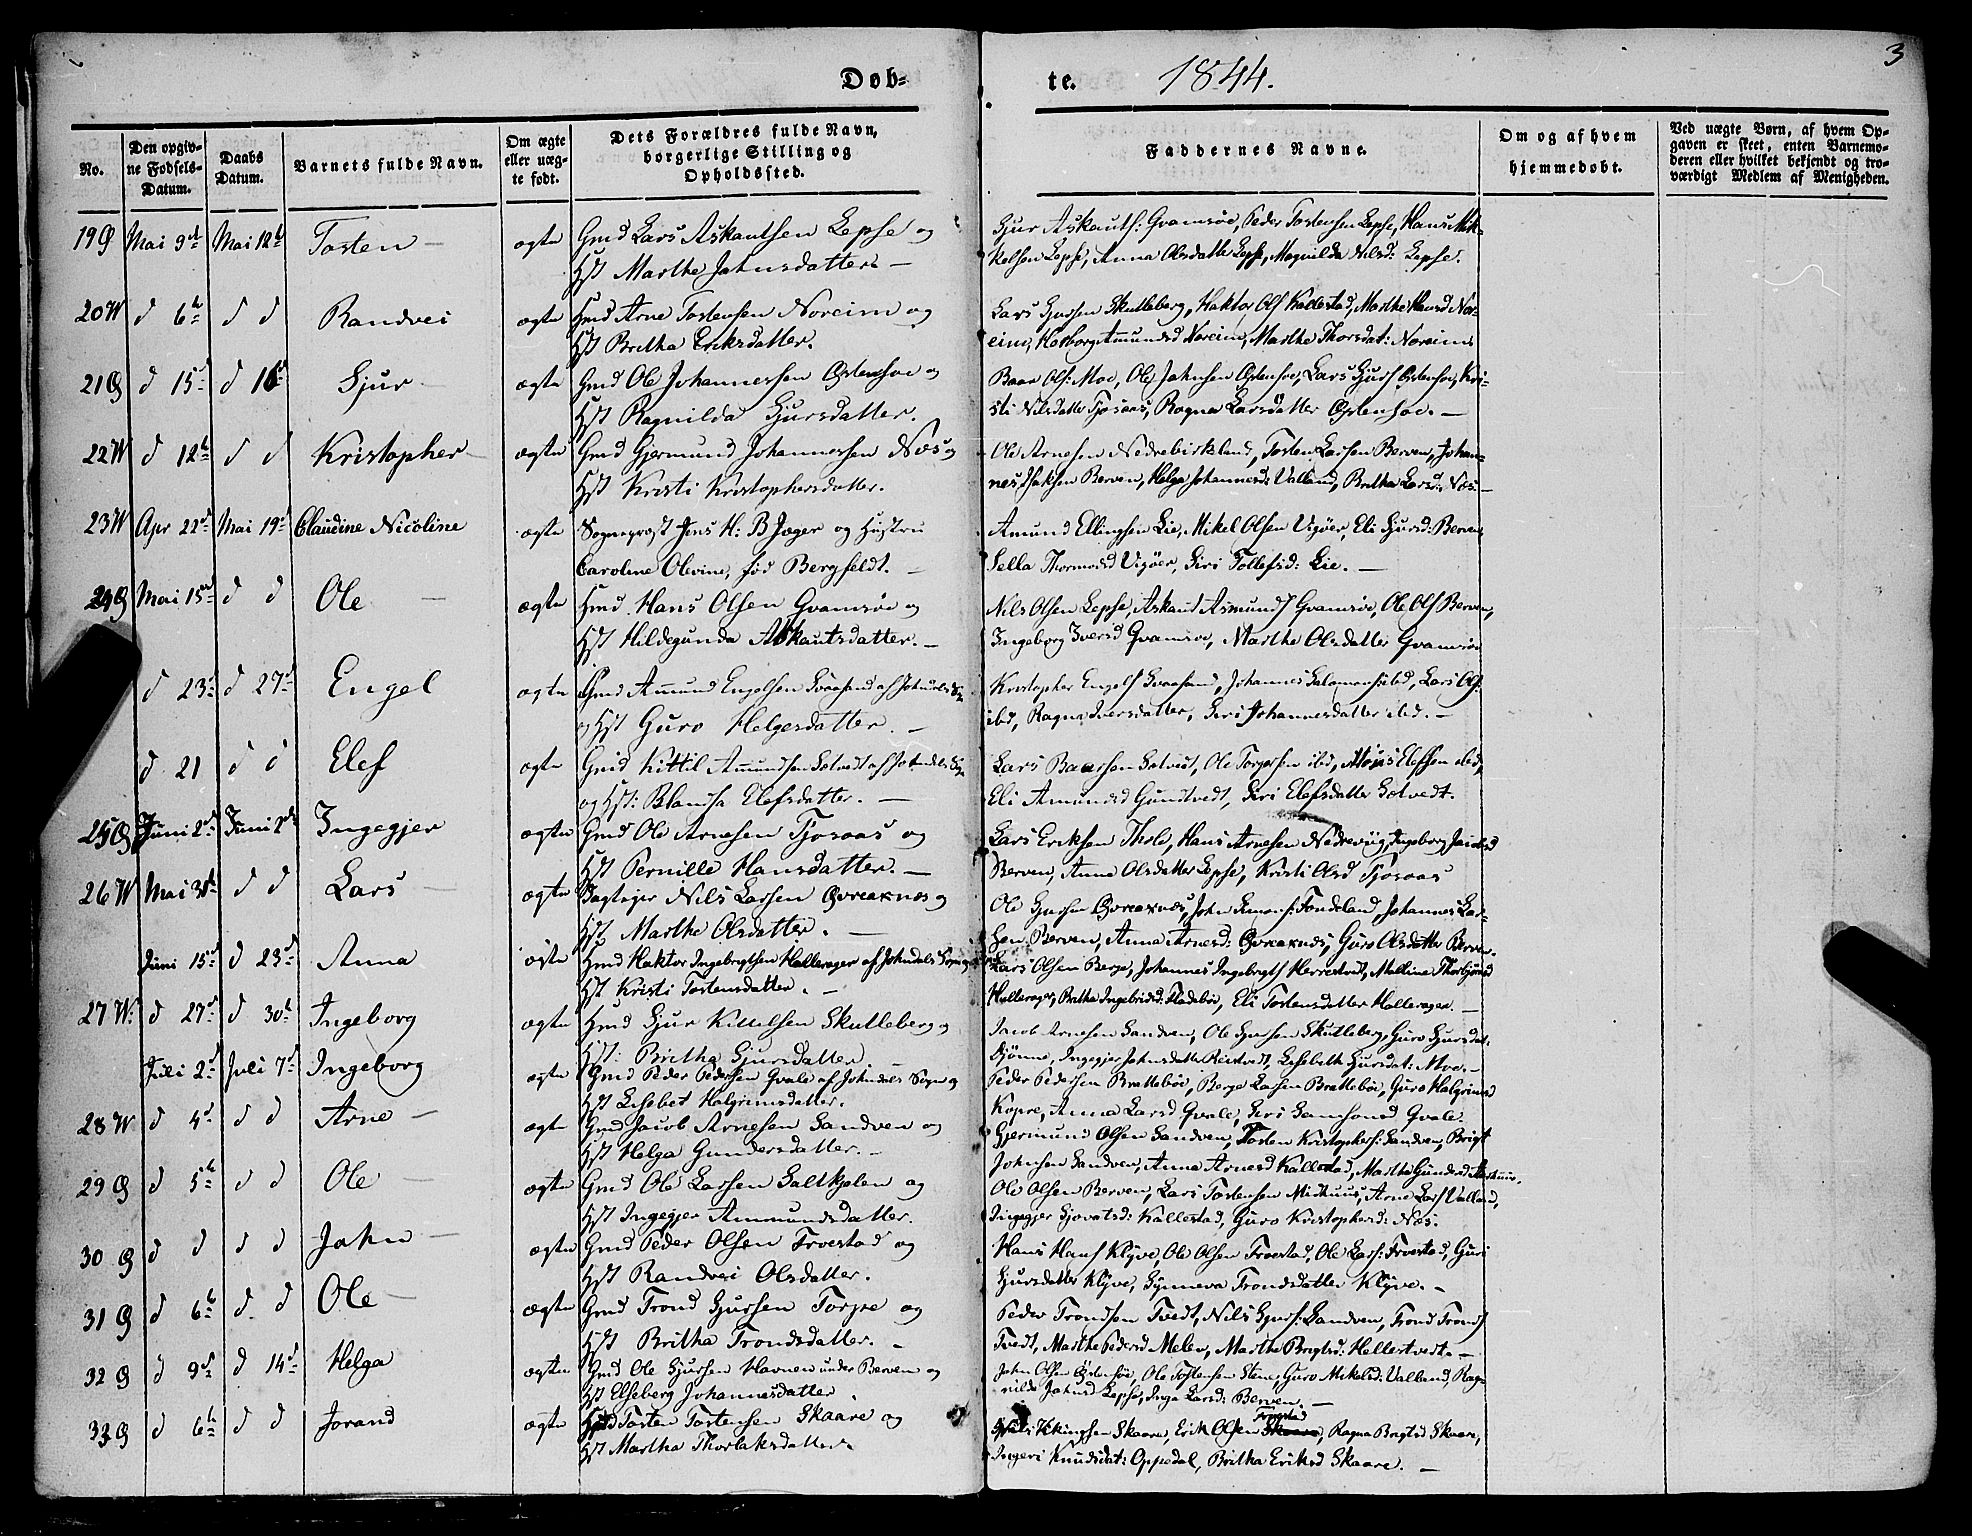 3
Døb- te. 1844.
No.
Den opgiv-
ne Fødsels-
Datum.
Daabs
Datum.
Barnets fulde Navn.
Om ægte
eller uæg-
te født.
Dets Forældres fulde Navn,
borgerlige Stilling og
Opholdssted.
Faddernes Navne.
Om og af hvem
hjemmedøbt.
Ved uægte Børn, af hvem Op-
gaven er skeet, enten Barnemo-
deren eller hvilket bekjendt og tro-
værdigt Medlem af Menigheden.
19 Mai 9 Mai 12 Tosten ægte Gmd Lars Askautsen Lepse og
Hst Marthe Jahnsdatter. —
Sjur Askauts: Gvamsøe, Peder Tostensen Lepse, Hans Mik-
kelsen Lepse, Anna Olsdatter Lepse, Magnilda Nilsd: Lepse.
20 W d 6 d d Randvei ægte Hmd Arne Tostensen Noreim og
Hst Britha Eriksdatter.
Lars Sjursen Skutleberg, Haktor Ols Kallestad, Marthe Nor-
eim, Herborg Amundsd Noreim, Marthe Thorsdat: Noreim
21 d 15 d 16 Sjur ægte Gmd Ole Johannessen Østensøe og
Hst Ragnilda Sjursdatter.
Baar Ols: Moe, Ole Jahnsen Østensøe, Lars Sjurs Østensøe, Kri-
sti Nilsdatter Tjosaas, Ragna Larsdatter Østensøe. —
22 W d 12 d d Kristopher ægte Gmd Gjermund Johannessen Næs og
Hst Kristi Kristophersdatter.
Ole Arnesen Nedrebirkeland, Tosten Larsen Berven, Johan-
nes Berven, Helga Johannesd: Valland, Britha Larsd: Næs. —
23 W Apr 22 Mai 19 Claudine Nicoline ægte Sogneprost Jens H: B Jæger og Hustru
Caroline Olevine, fød Bergfeldt. —
Amund Ellingsen Lie, Mikel Olsen Vigøer, Eli Sjursd: Berven,
Sella Thormodsd Vigøer, Siri Tollefsd: Lie. —
24 Mai 15 d d Ole — ægte Hmd Hans Olsen Gvamsøe og
Hst Hildegunda Askautsdatter. —
Nils Olsen Lepse, Askaut Asmunds Gvamsøe, Ole Ols Berven,
Ingeborg Iversd Gvamsøe, Marthe Olsdatter Gvamsøe
d 23 d 27 Engel ægte Gmd Amund Engelsen Svaasand af Johndals Sogn
og Hst Guro Helgesdatter. —
Kristopher Engels Svaasand, Johannes Salamons ibd, Lars Ols:
ibd, Ragna Iversdatter, Siri Johannesdatter ibd. —
d 21 d d Elef ægte Gmd Kittil Amundsen Solvedt af Johndals Sogn
og Hst: Elefsdatter. —
Lars Baarsen Solvedt, Ole Torgersen ibd, Elefsen ibd,
Eli Amundsd Gundtvedt, Siri Elefsdatter Solvedt.
25 Juni 2 Juni 2 Ingegjer ægte Gmd Ole Arnesen Tjosaas og
Hst Pernille Hansdatter. —
Lars Eriksen Thole, Hans Arnesen Nedrevig, Ingeborg
Berven, Anna Olsdatter Lepse, Kristi Olsd Tjosaas
26 W Mai d d Lars — ægte Nils Larsen Øvreaknæs og
Hst Marthe Olsdatter. —
Ole Sjursen Øvreaknæs, John Simons: Tondeland, Johannes Lar-
sen Berven, Anna Arnesd: Øvreaknæs, Guro Olsdatter Berven.
Juni 15 d 23 Anna ægte Hmd Haktor Ingebrigtsen Hallerager af Johndals Sogn
Hst Kristi Tostensdatter. —
Lars Olsen Berge, Johannes Ingebrigts Herrestvedt,
Hallerager, Britha Ingebrigsd: Fladebøe, Eli Tostensdatter Hallerager. —
27 W d 27 d 30 Ingeborg ægte Hmd Sjur Kittilsen Skutleberg og
Hst: Britha Sjursdatter —
Jacob Arnesen Sandven, Ole Sjursen Skutleberg, Guro Sjursdat:
Djønne, Ingegjer Johnsdatter, Lisebeth Sjursdat: Moe. —
Juli 2 Juli 7 Ingeborg ægte Gmd Peder Pedersen Qvale af Johndals Sogn og
Hst Lisebet Halgrimsdatter.
Peder Pedersen Brattebøe, Berge Larsen Brattebøe, Guro Halgrimsd
Kopre, Anna Larsd Qvale, Siri Samsonsd Qvale.
28 W d 4 d d Arne — ægt Gmd Jacob Arnesen Sandven og
Hst Helga Gundersdatter. —
Gjermund Olsen Sandven, Tosten Kristophers: Sandven, Brigt
Johnsen Sandven, Anna Arnesd Kallestad, Marthe Gundersd
29 d 5 d d Ole — ægte Gmd Ole Larsen Saltkjelen og
Hst Ingegjer Ammundsdatter.
Ole Olsen Berven, Lars Tostensen Midhuus, Arne Lars Valland,
Ingegjer Sjovatsd: Kallestad, Guro Kristophersd: Næs.
30 d d d d John — ægte Gmd Peder Olsen Froestad og
Hst Randvei Olsdatter.
Hans Hans Klyve, Ole Olsen Froestad, Ole Lars: Froestad, Guri
Sjursdatter Klyve, Synneva Trondsdatter Klyve. —
31 d 6 d d Ole — ægte Gmd Trond Sjursen Torpe og
Hst Britha Trondsdatter. —
Peder Trondsen Tvedt, Nils Sjurs: Sandven, Trond Tronds
Tvedt, Marthe Pedersd Melen, Marthe Brigtsd: Hallestvedt. —
32 d 9 d 14 Helga ægte Gmd Ole Sjursen Havnen under Berven og
Hst Elseberg Johannesdatter.
John Olsen Østensøe, Ole Tostensen Stene, Guro Mikelsd: Valland, Rag-
nilde Jahnsd Lepse, Inga Larsd: Berven. —
33 d 6 d d Jorand ægte Tosten Tostensen Skaare og
Hst Martha Thorlaksdatter.
Froestad
Vikingsen Skaare, Erik Olsen Skaare, Ragna Brigtsd Skaare,
Ingeri Knudsdat: Oppedal, Britha Eriksd Skaare. —